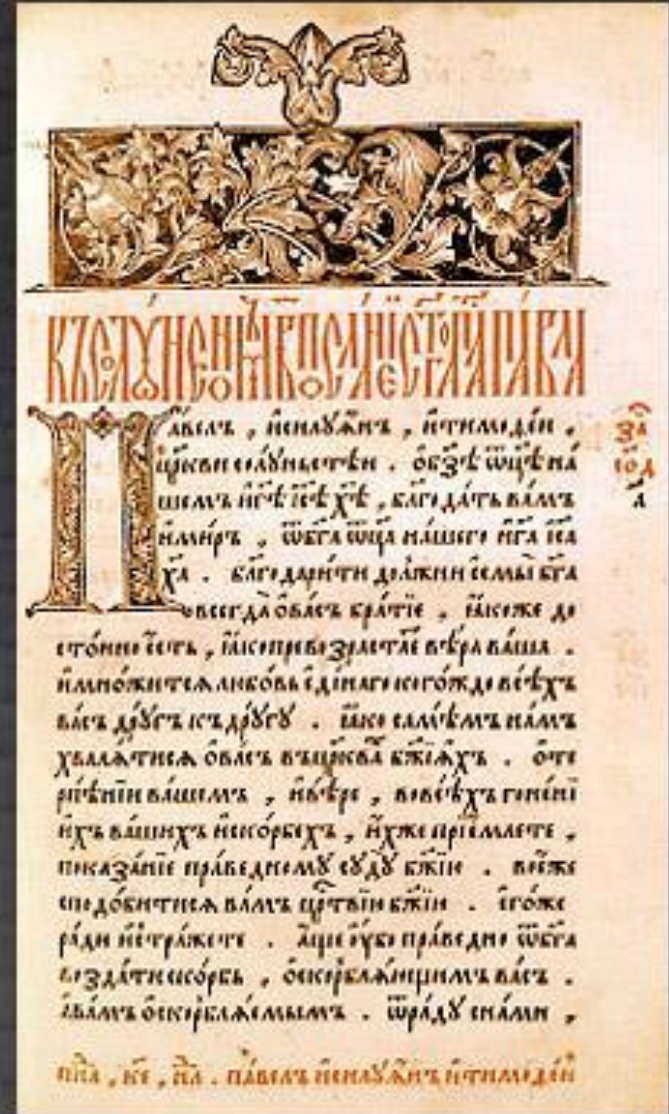 Къ солꙋ́нѧномъ в҃ посла́нїе ст҃го ап҃ла па́вла
Па́велъ , и҆силꙋѧ́нъ , и҆тимоѳе́и ,
цр҃кви солꙋ́ньстѣи . ѻ҆бз҃ѣ ѿц҃ѣ на́
шемъ и҆гд҃ѣ і҆с҃ѣ хр҃ѣ , блг҃ода́ть ва́мъ
и҆ми́ръ , ѿбг҃а ѿц҃а на́шего и҆гд҃а і҆с҃а
хр҃а . благодари́ти до́лжни є҆смы̀ бг҃а
всегда̀ ѻ҆ва́съ бра́тїе , ꙗ҆́коже до
сто́ино є҆́сть , ꙗ҆́ко превозраста́е вѣ́ра ва́ша .
и҆мно́житсѧ любо́вь є҆ди́наго кого́ждо всѣ́хъ
ва́съ дрꙋ́гъ къ дрꙋ́гꙋ . ꙗ҆́ко самѣ́мъ на́мъ
хвали́тисѧ ѻ҆ва́съ въ цр҃ква бж҃їѧхъ . ѻ҆те
рпѣ́нїи ва́шемъ , и҆вѣ́ре , вовсѣ́хъ гоне́нї
и҆хъ ва́шихъ и҆ско́рбехъ , и҆́хже прїе́млете ,
показа́нїе пра́ведномꙋ сꙋдꙋ̀ бж҃їю . во є҆́же
сподо́битисѧ ва́мъ цр҃твїю бж҃їю . є҆го́же
ра́ди и҆стра́жете . а҆́ще ᲂу҆́бо пра́ведно ѿбг҃а
возда́ти ско́рбь , ѻ҆скорблѧ́ющимъ ва́съ .
а҆ва́мъ ѻ҆скорблѧ́емымъ . ѿра́дꙋ сна́ми ,
за
сод
а
па́велъ и҆силꙋѧ́нъ и҆тимоѳе́и